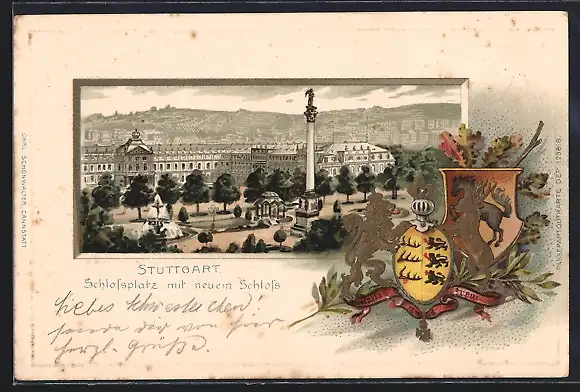 STUTTGART.
Schloſsplatz mit neuem Schloſs
liebes Schwesterchen!
sende dir von hier
herzl. Grüße.
CARL SCHÖNWALTER, CANNSTATT